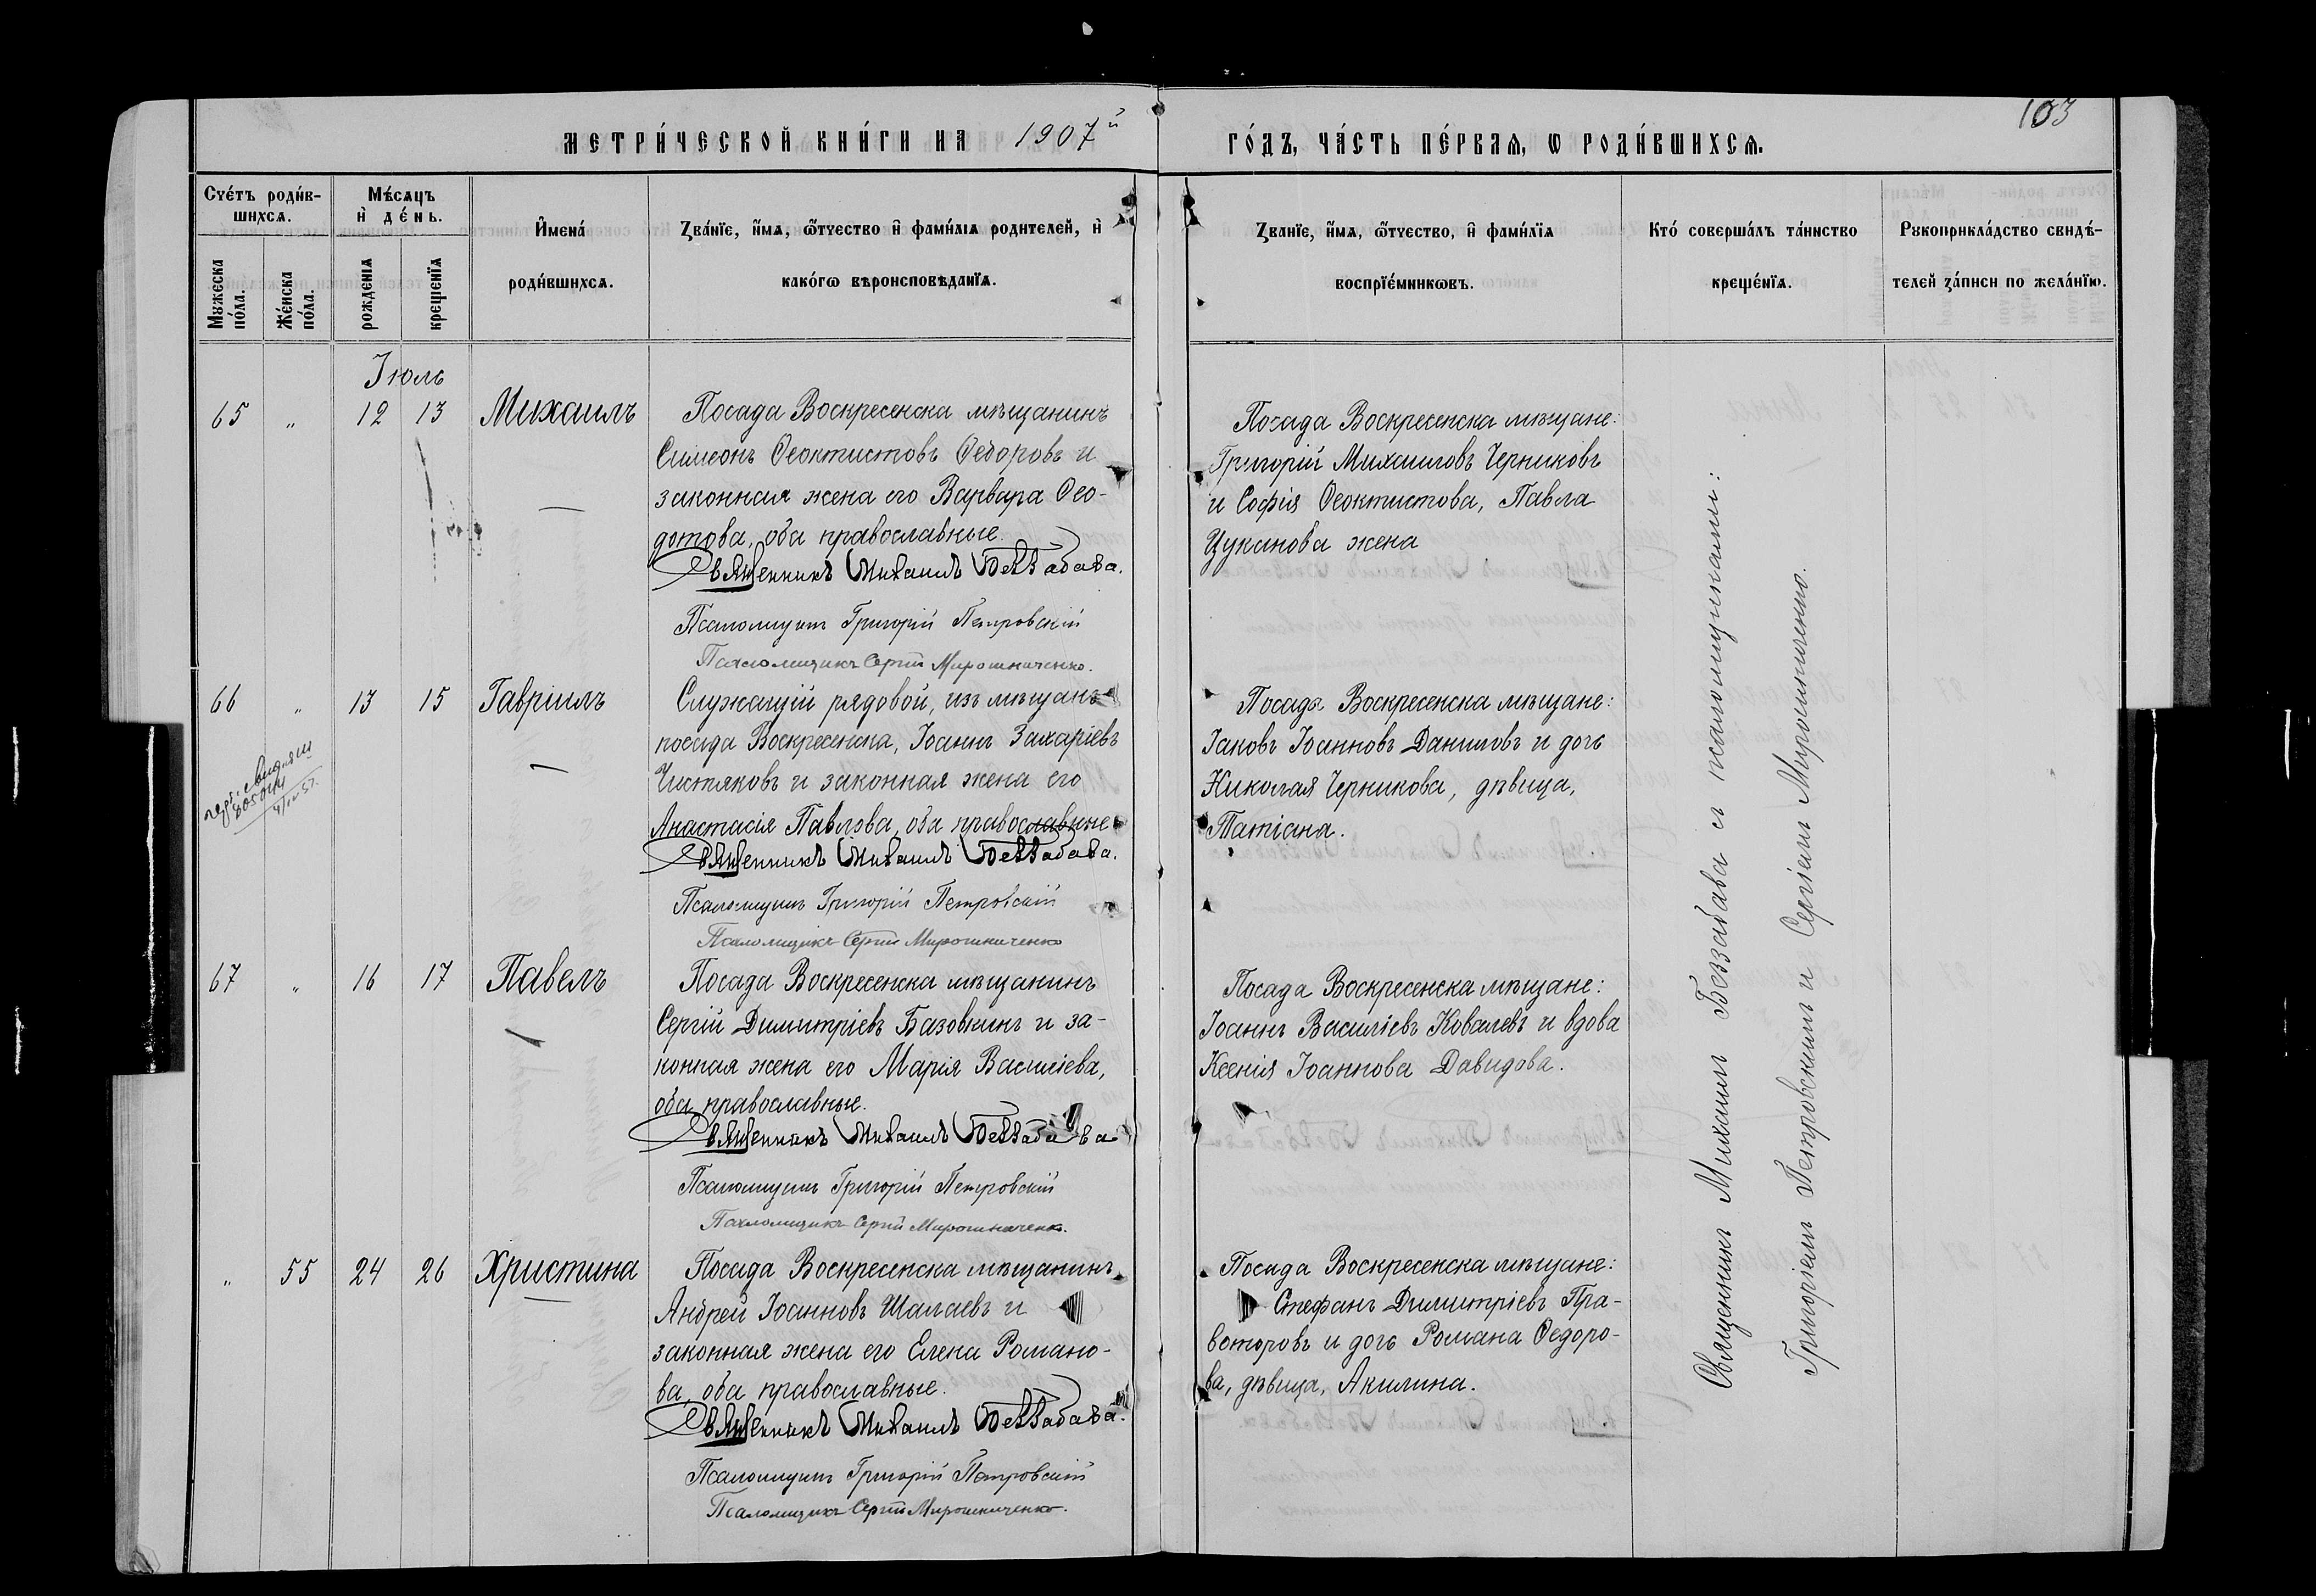 103
МЕТРИ́ЧЕСКОЙ КНИ́ГИ НА 1907й ГО́ДЪ, ЧА́СТЬ ПЕ́РВАѦ, Ѡ РОДИ́ВШИХСѦ.
Сче́тъ роди́в-
шихсѧ.
Мꙋжеска по́ла.
Же́нска по́ла.
Мѣ́сѧцъ
и҆ де́нь.
рожденїѧ
крещенїѧ
И҆мена́
роди́вшихсѧ.
Зва́нїе, и҆́мѧ, ѻ҆́тчество и҆ фами́лїѧ родителей, и҆
како́гѡ вѣроисповѣданїѧ.
Званїе, и҆́мѧ, ѻ҆́тчество, и҆ фами́лїѧ
воспрїе́мникѡвъ.
Кто́ соверша́лъ та́инство
креще́нїѧ.
Рꙋкоприкла́дство свидѣ́-
телей за́писи по жела́нїю.
Іюль
65 „ 12 13 Михаилъ
Посада Воскресенска мѣщанинъ
Симеонъ Ѳеоктистовъ Ѳедоровъ и
законная жена его Варвара Ѳео-
дотова, оба православные.
Священникъ Михаилъ Беззабава.
Псаломщикъ Григорій Петровскій
Псаломщикъ Сергій Мирошниченко.
Посада Воскресенска мѣщане:
Григорій Михаиловъ Черниковъ
и Софія Ѳеоктистова, Павла
Цуканова жена
66 „ 13 15 Гавріилъ
Служащій рядовой, изъ мѣщанъ
посада Воскресенска, Іоаннъ Захаріевъ
Чистяковъ и законная жена его
Анастасія Павлова, оба православные
Священникъ Михаилъ Беззабава.
Псаломщикъ Григорій Петровскій
Псаломщикъ Сергій Мирошниченко
Посада Воскресенска мѣщане:
Іаковъ Іоанновъ Даниловъ и дочь
Николая Черникова, дѣвица,
Татіана.
67 „ 16 17 Павелъ
Посада Воскресенска мѣщанинъ
Сергій Димитріевъ Базовкинъ и за-
конная жена его Марія Василіева,
оба православные.
Священникъ Михаилъ Беззабава
Псаломщикъ Григорій Петровскій
Псаломщикъ Сергій Мирошниченко.
Посада Воскресенска мѣщане:
Іоаннъ Василіевъ Ковалевъ и вдова
Ксенія Іоаннова Давидова.
„ 55 24 26 Христина
Посада Воскресенска мѣщанинъ
Андрей Іоанновъ Шалаевъ и
законная жена его Елена Романо-
ва, оба православные.
Священникъ Михаилъ Беззабава.
Псаломщикъ Григорій Петровскій
Псаломщикъ Сергій Мирошниченко.
Посада Воскресенска мѣщане:
Стефанъ Димитріевъ Пра-
воторовъ и дочь Романа Ѳедоро-
ва, дѣвица, Акилина.
Священникъ Михаилъ Беззабава съ псаломщиками:
Григоріемъ Петровскимъ и Сергіемъ Мирошниченко.